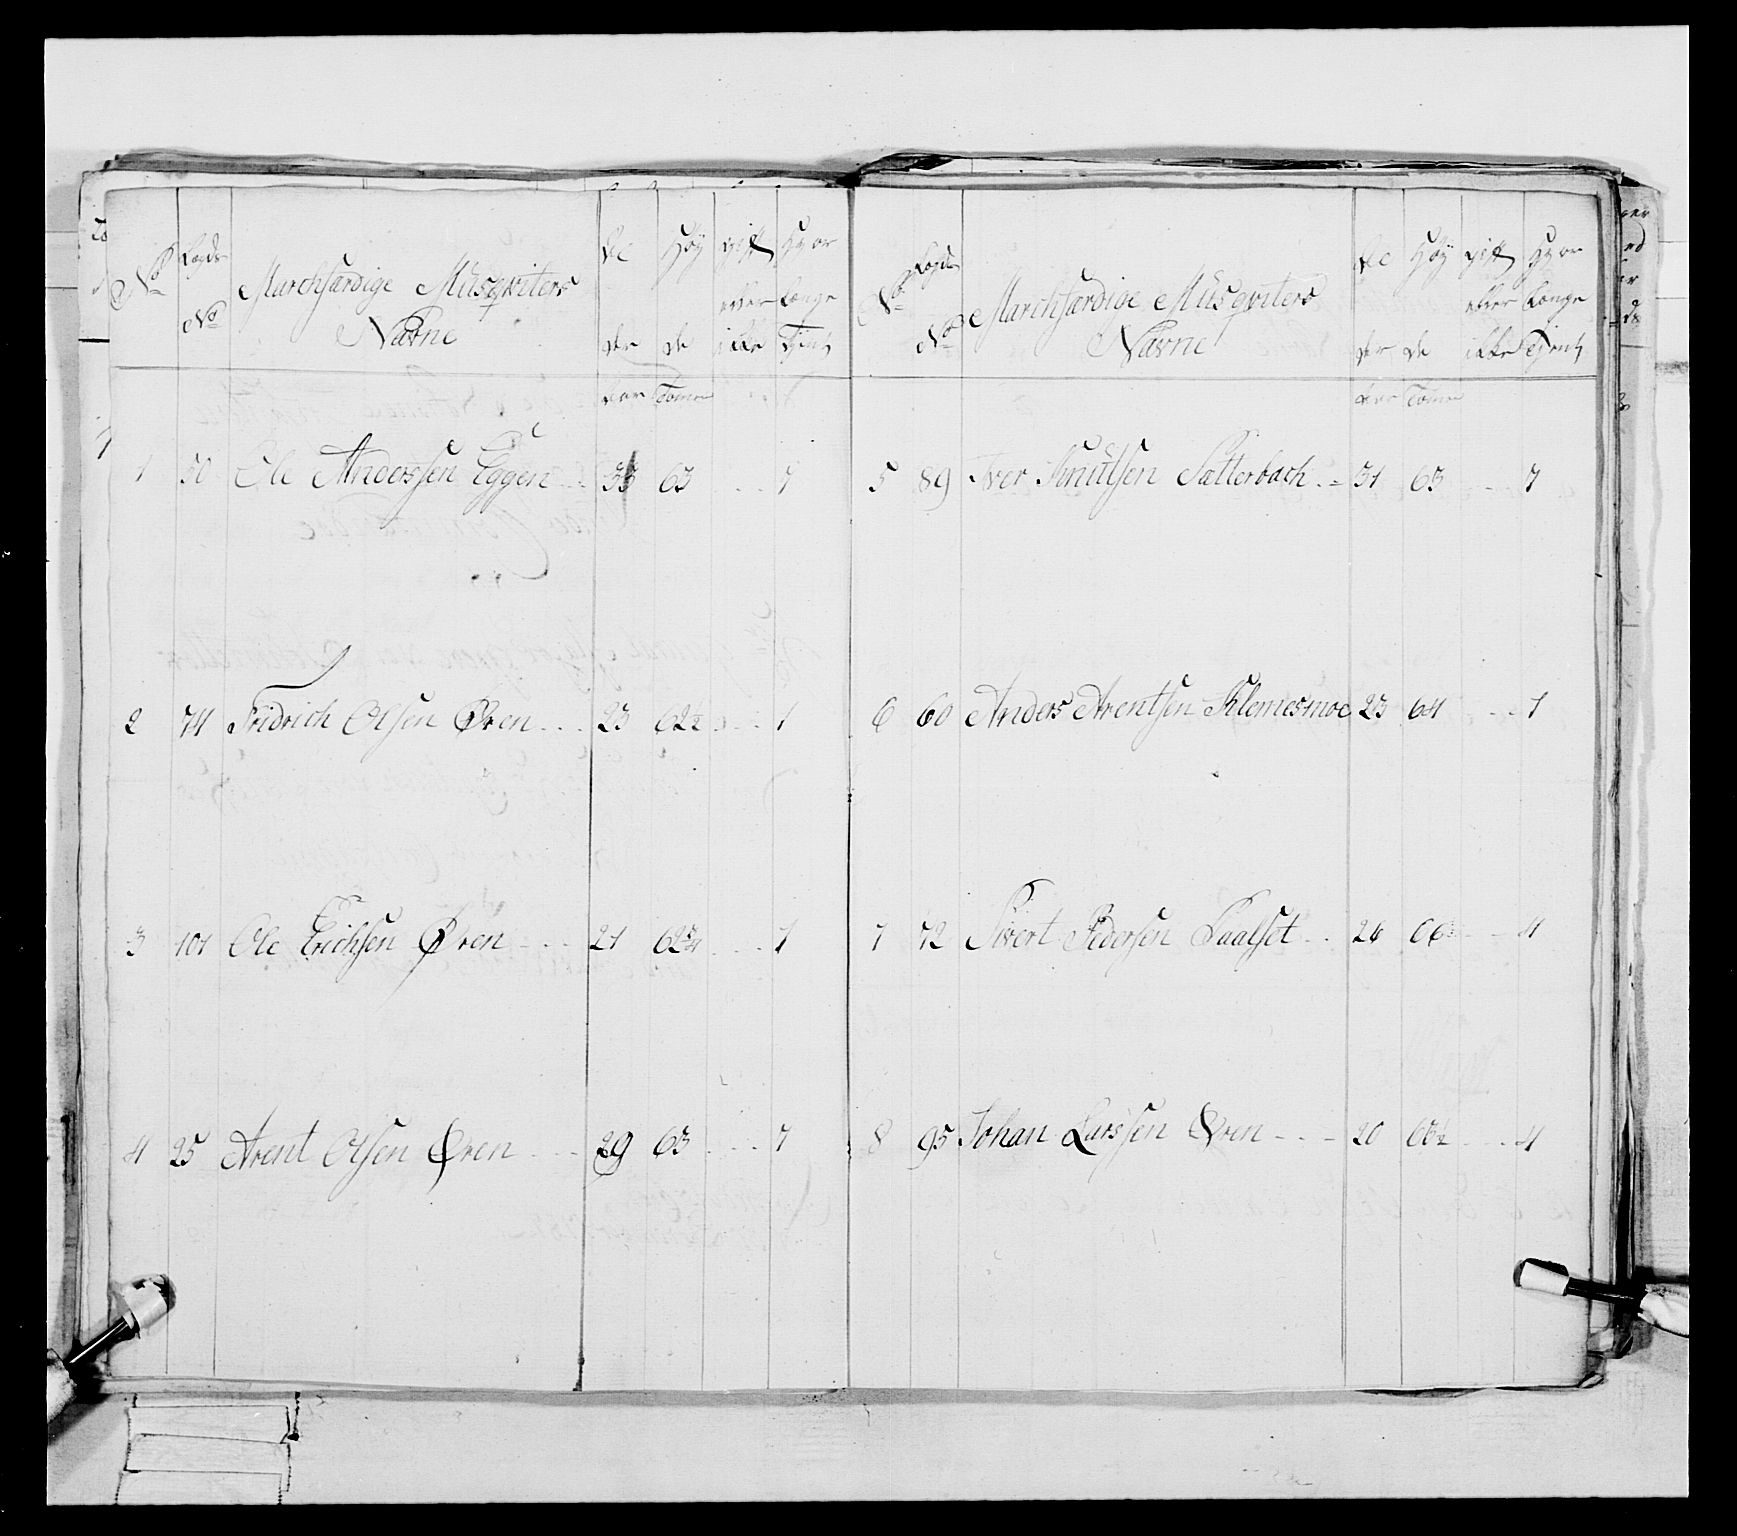 No Lægds No Marchfærdige Musqviters Navne Al der Høy de gift eller ikke Hvor længe Tient
Aar Tomer
1 50 Ole Anderssen Eggen 33 63 7
2 74 Fridrich Olsen Øren 23 62½ 1
3 101 Ole Erichsen Øren 21 62¾ 1
4 25 Arent Olsen Øren 29 63 7
No Lægds No Marchfærdige Musqviters Navne Al der Høy de gift eller ikke Hvor længe Tient
Aar Tomer
5 89 Iver Knutsen Sætterbach 31 63 7
6 60 Anders Arentsen Klemesmoe 23 64 1
7 72 Sivert Pedersen Paalset 26 66 4
8 95 Johan Larssen Øren 20 4